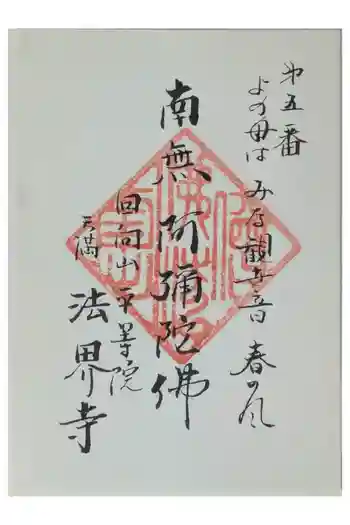 第五番
よの母は みな観世音 春の風
南無阿彌陀佛
回向山平等院
天満 法界寺